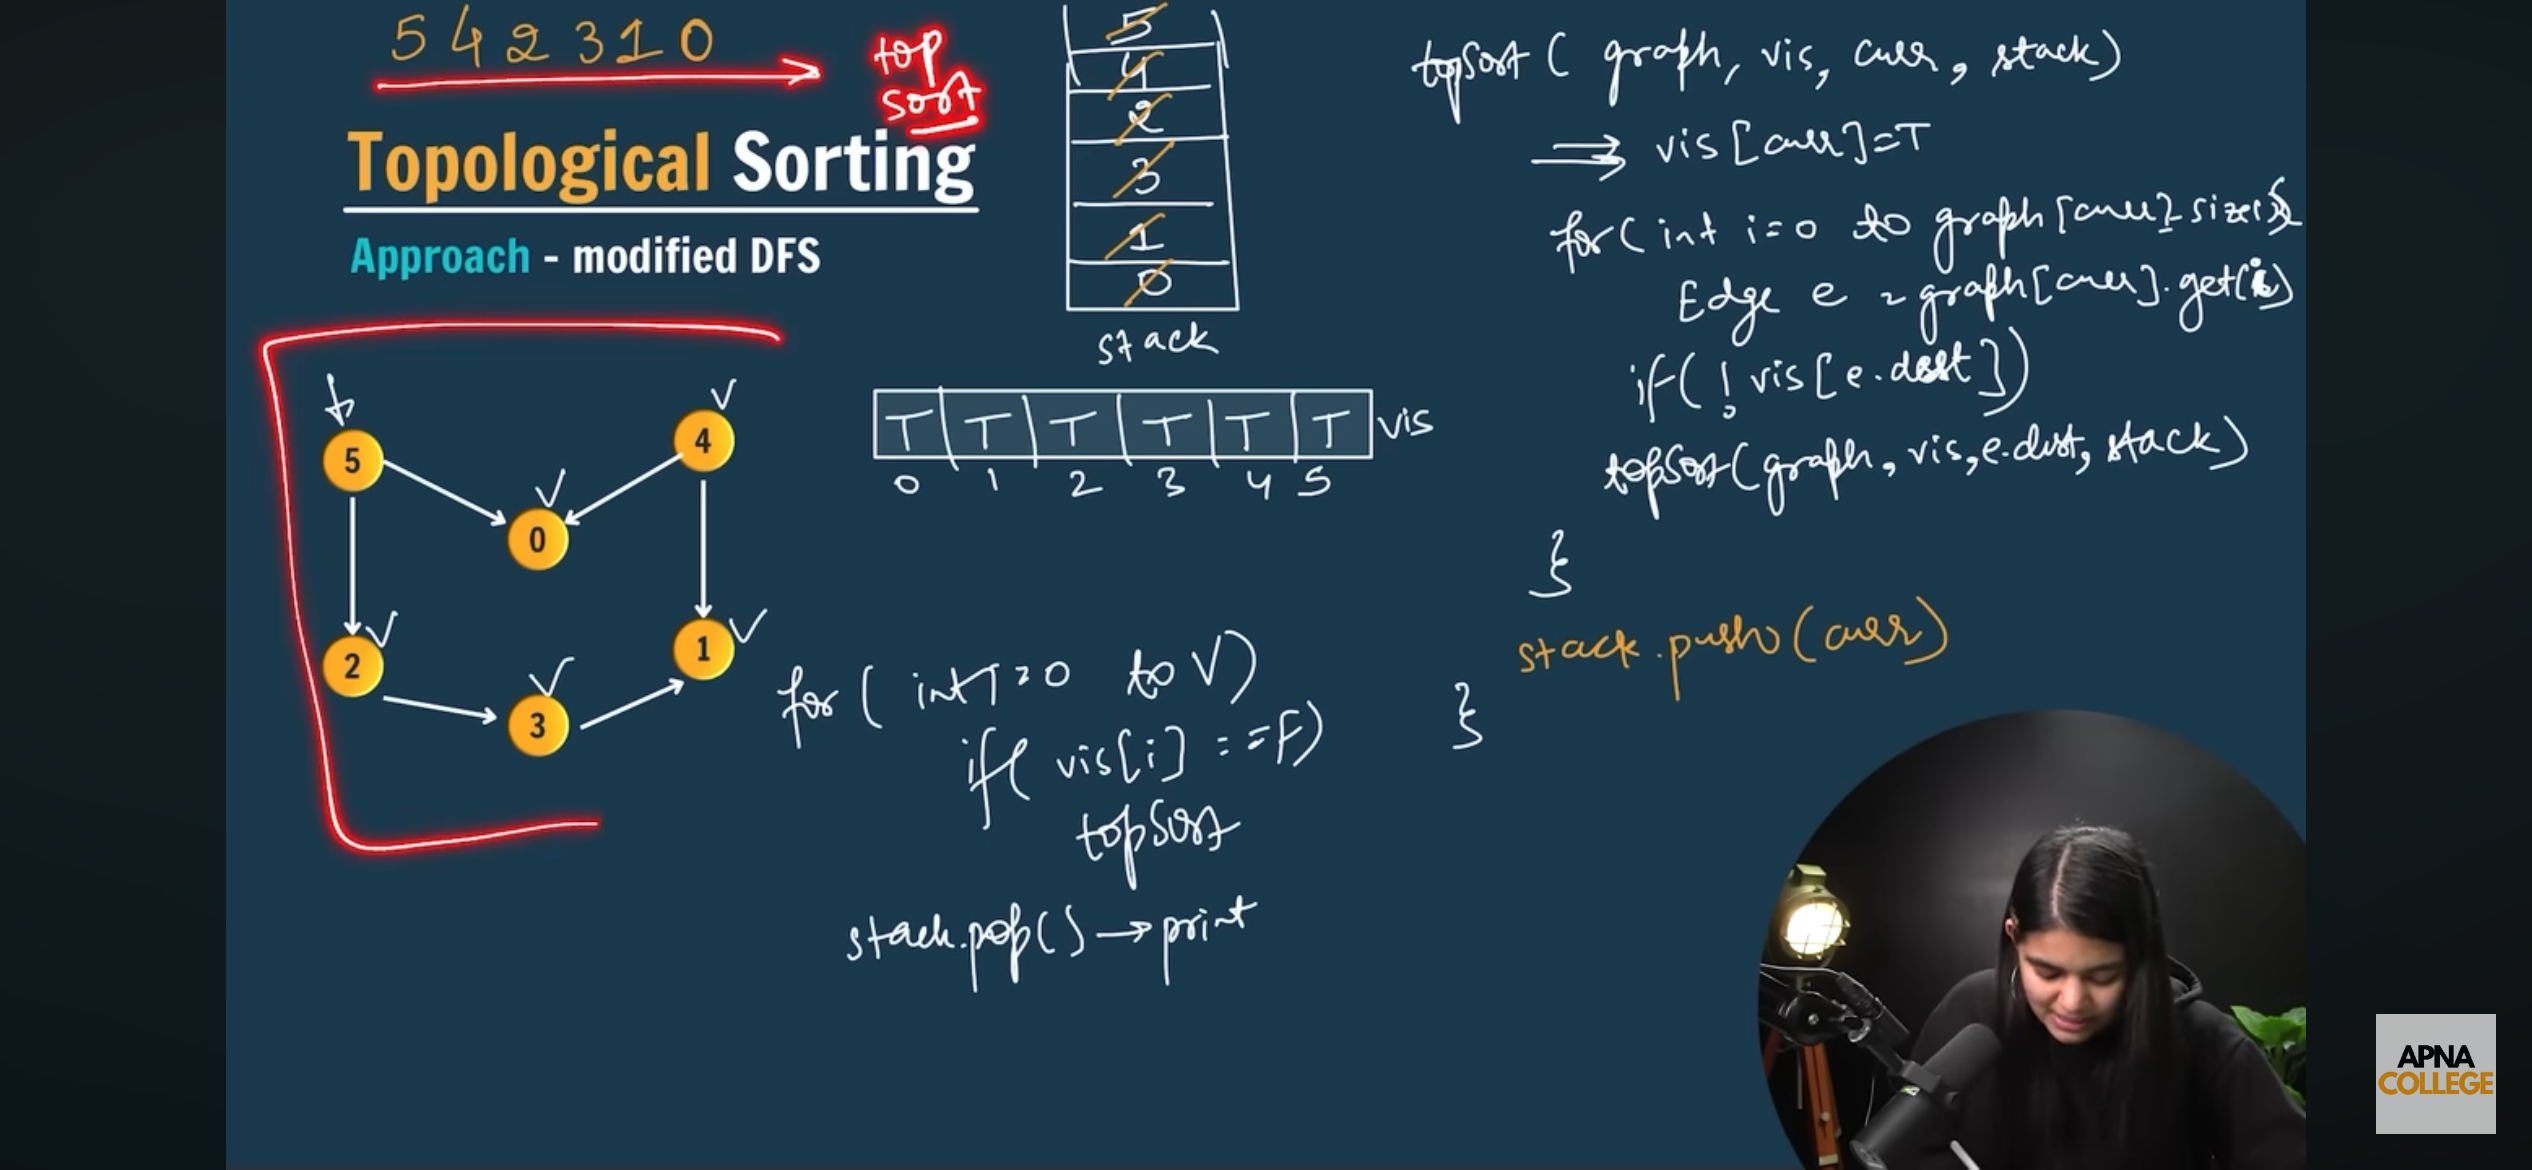 5 4 2 3 1 0
top
sort
Topological Sorting
Approach - modified DFS
5
4
2
3
1
0
stack
T T T T T T vis
0 1 2 3 4 5
5
4
0
2
1
3
for ( int i=0 to V)
if( vis[i] ==F)
topSort
stack.pop() → print
topSort ( graph, vis, curr, stack)
⇒ vis[curr]=T
for( int i=0 to graph[curr].size){
Edge e = graph[curr].get(i)
if( ! vis[e.dest])
topSort(graph, vis, e.dest, stack)
}
stack.push(curr)
}
APNA
COLLEGE